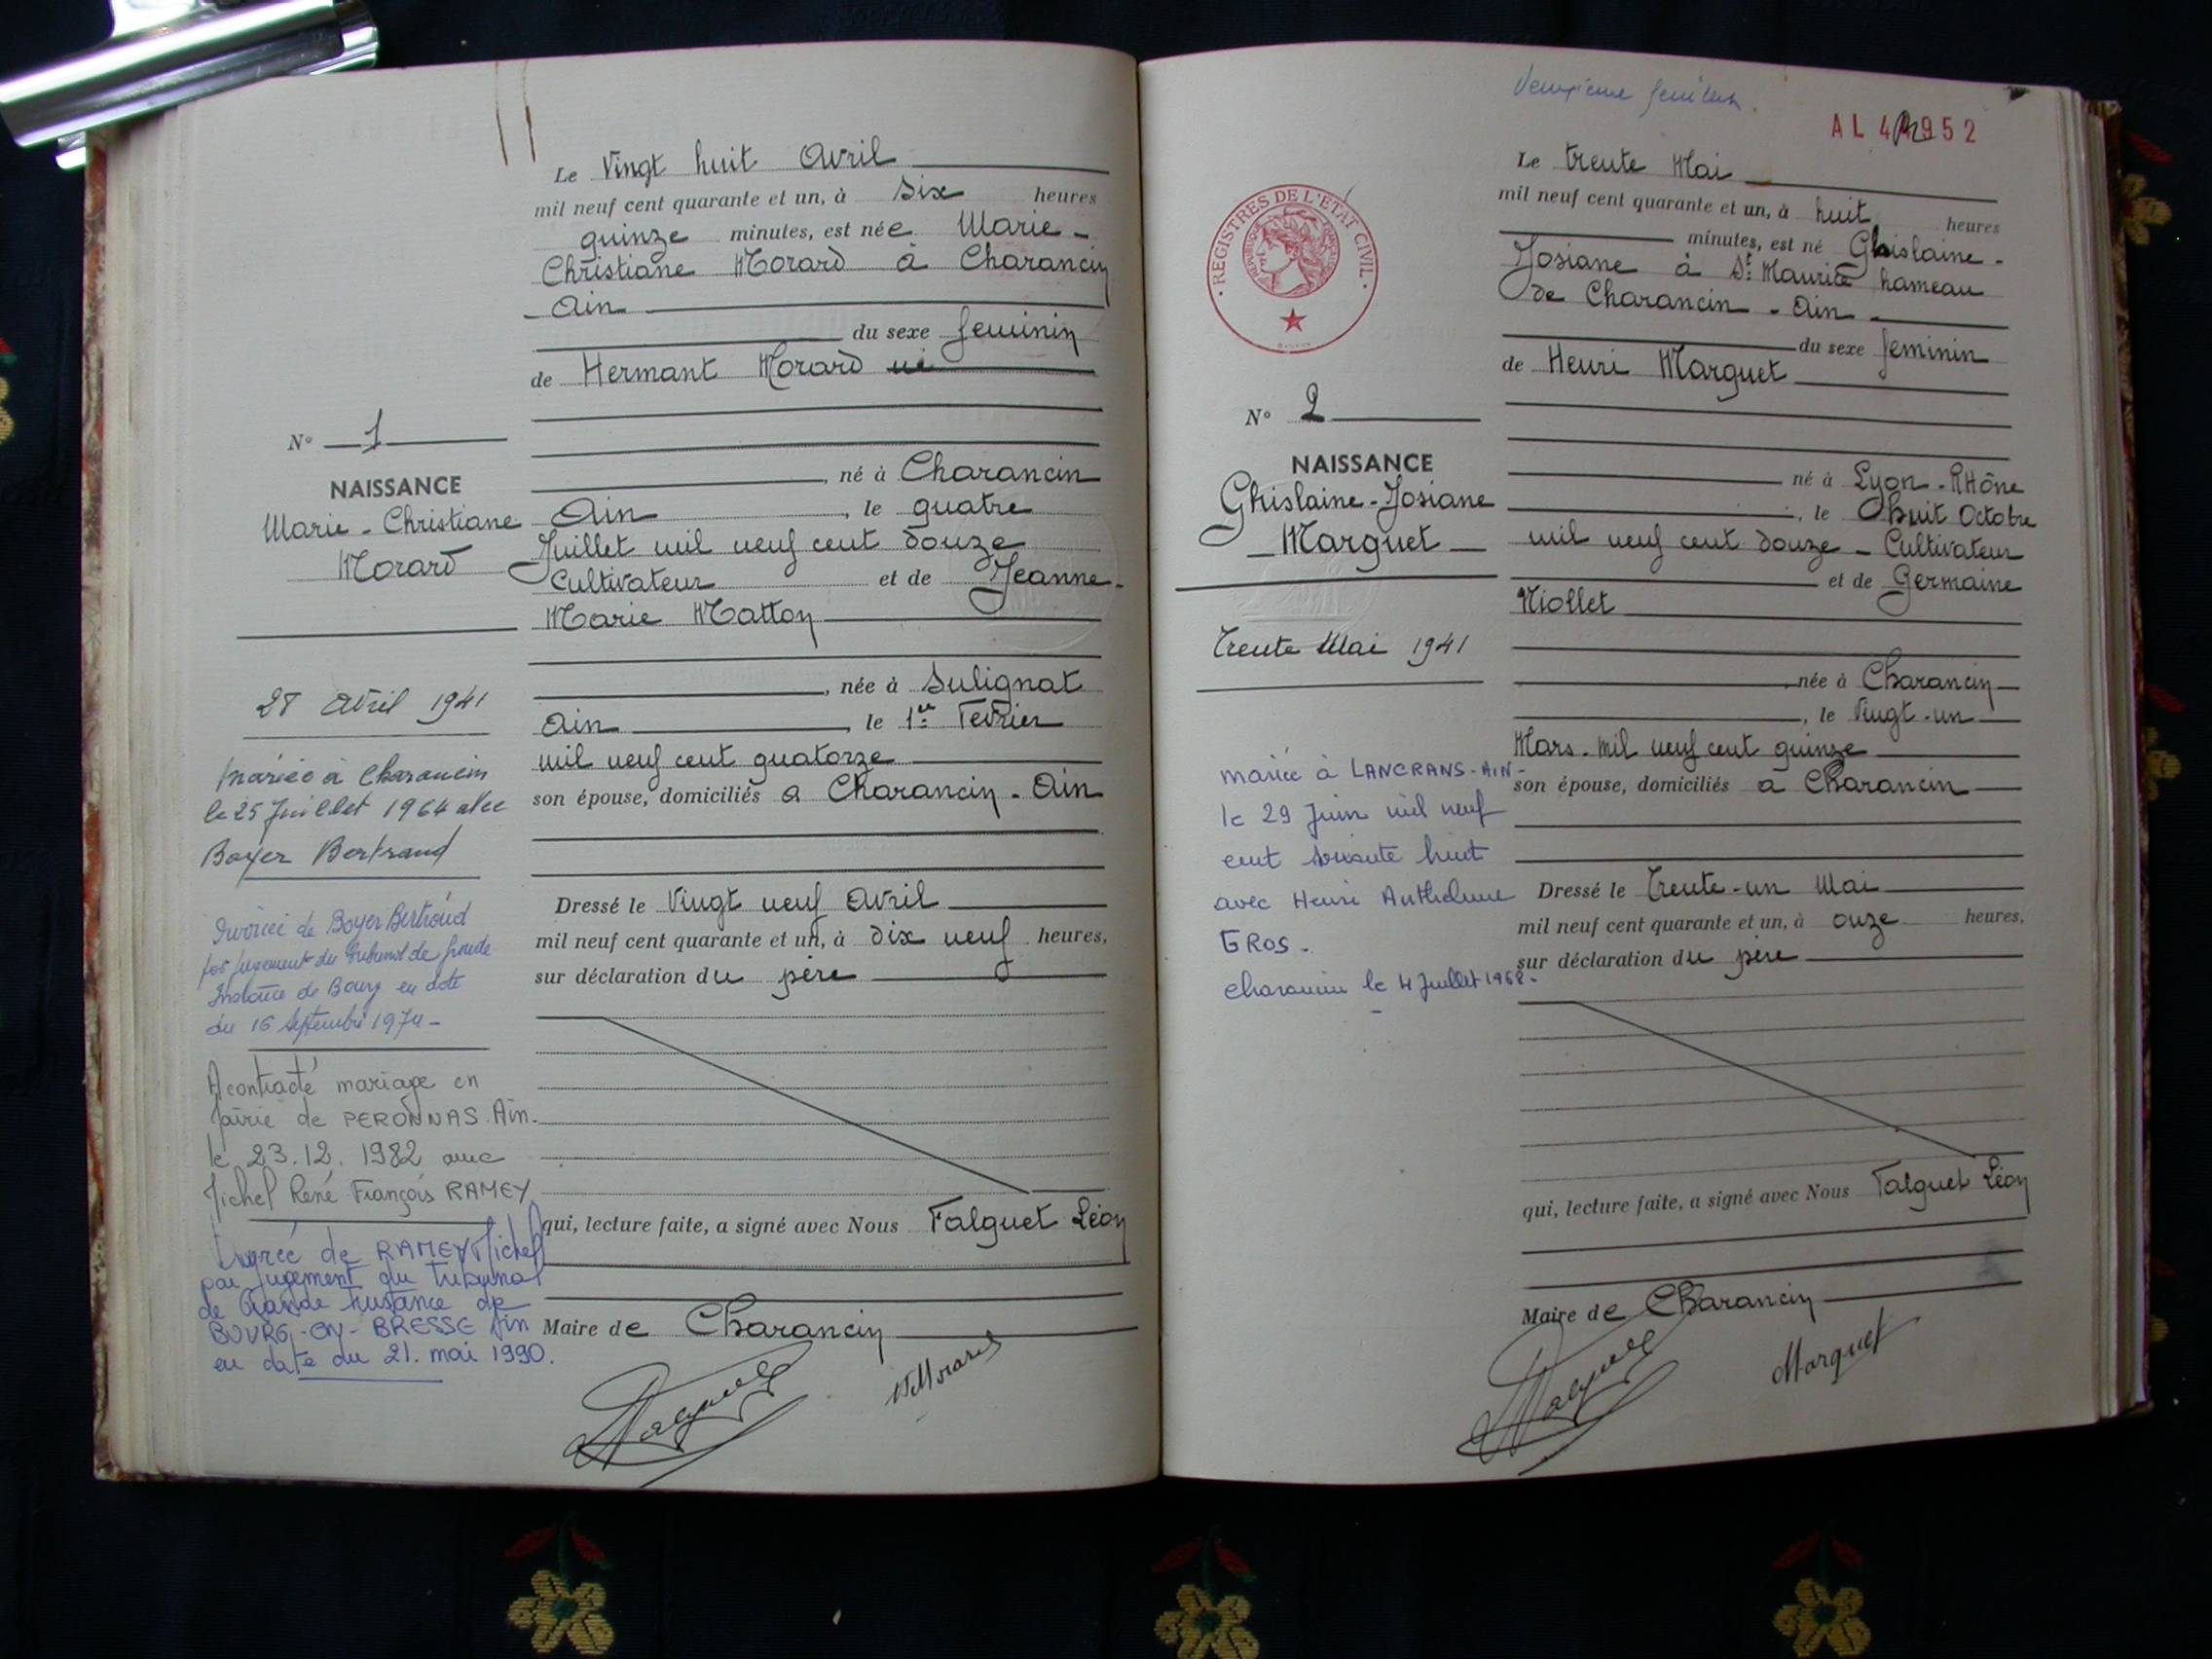 Le Vingt huit Avril
mil neuf cent quarante et un, à six heures
quinze minutes, est née Marie-
Christiane Morard à Charancin
Ain
du sexe feminin
de Hermant Morard
né à Charancin
Ain, le quatre
Juillet mil neuf cent douze
Cultivateur et de Jeanne-
Marie Matton
, née à Sulignat
Ain, le 1er Fevrier
mil neuf cent quatorze
son épouse, domiciliés a Charancin - Ain
Dressé le Vingt neuf Avril
mil neuf cent quarante et un, à dix neuf heures,
sur déclaration du père
qui, lecture faite, a signé avec Nous Falguet Léon
Maire de Charancin
Falguet
HMorard
N° 1
NAISSANCE
Marie-Christiane
Morard
28 Avril 1941
Mariée à Charancin
le 25 Juillet 1964 avec
Boyer Bertrand
Divorcée de Boyer Bertrand
par jugement du tribunal de grande
Instance de Bourg en date
du 16 Septembre 1974-
A contracté mariage en
Mairie de PERONNAS Ain.
le 23.12.1982 avec
Michel René François RAMEY
Divorcée de RAMEY Michel
par jugement du Tribunal
de Grande Instance de
BOURG-en-BRESSE Ain
en date du 21. mai 1990.
Deuxième feuillet.
AL 952
REGISTRES DE L'ETAT CIVIL
Le trente Mai
mil neuf cent quarante et un, à huit heures
minutes, est né Ghislaine-
Josiane à St Maurice hameau
de Charancin - Ain
du sexe feminin
de Henri Marguet
né à Lyon-RHône
, le huit Octobre
mil neuf cent douze - Cultivateur
et de Germaine
Niollet
née à Charancin
, le Vingt-un
Mars mil neuf cent quinze
son épouse, domiciliés à Charancin
Dressé le Trente-un Mai
mil neuf cent quarante et un, à onze heures,
sur déclaration du père
qui, lecture faite, a signé avec Nous Falguet Léon
Maire de Charancin
Falguet
Marguet
N° 2
NAISSANCE
Ghislaine-Josiane
Marguet
Trente Mai 1941
mariée à LANCRANS-AIN-
le 29 Juin mil neuf
cent soixante huit
avec Henri Anthelme
GROS-
Charancin le 4 Juillet 1968.